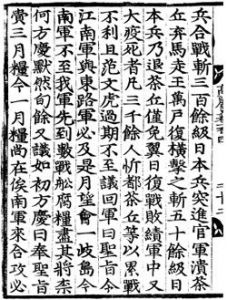 兵合戰斬三百餘級日本兵突進官軍潰茶
丘弃馬走王萬戶復橫擊之斬五十餘級日
本兵乃退茶丘僅免翼日復戰敗績軍中又
大疫死者凡三千餘人忻都茶丘等以累戰
不利且范文虎過期不至議回軍曰聖旨令
江南軍與東路軍必及是月望會一岐島今
南軍不至我軍先到數戰船腐糧盡其將柰
何方慶默然旬餘又議如初方慶曰奉聖旨
賫三月糧今一月糧尚在俟南軍來合攻必